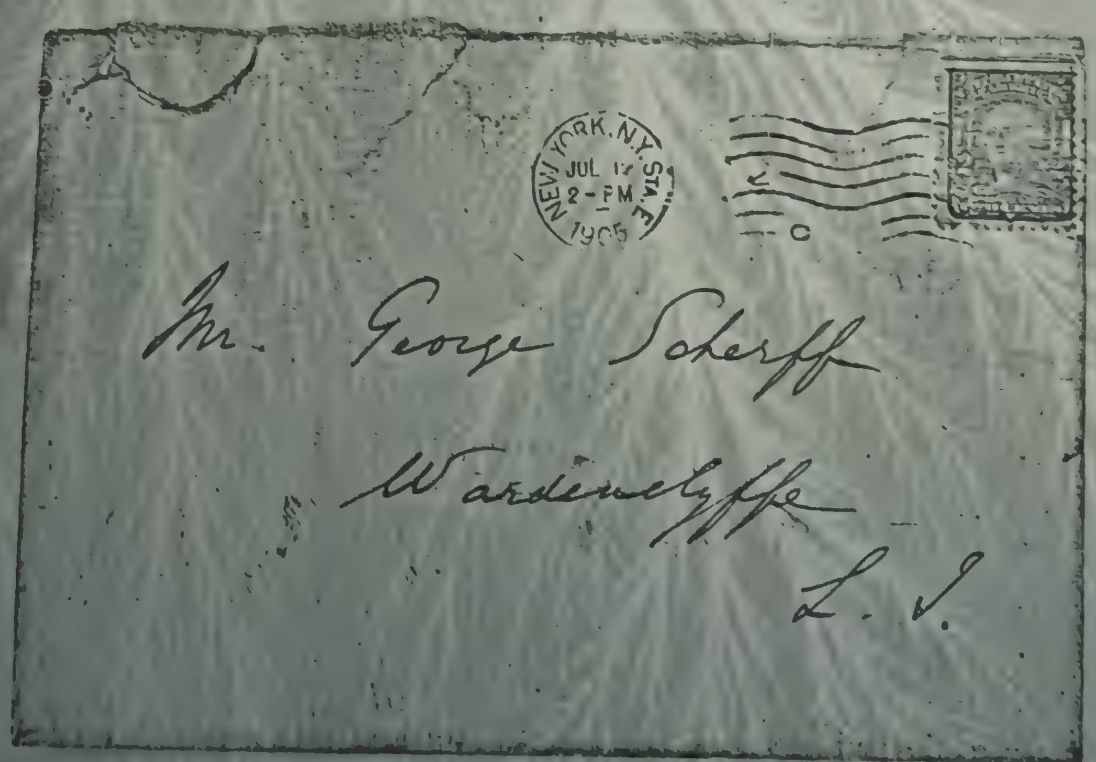 NEW YORK, N.Y. STA. E
JUL
2-PM
1905
Mr. George Scherff
Wardenclyffe
L. I.